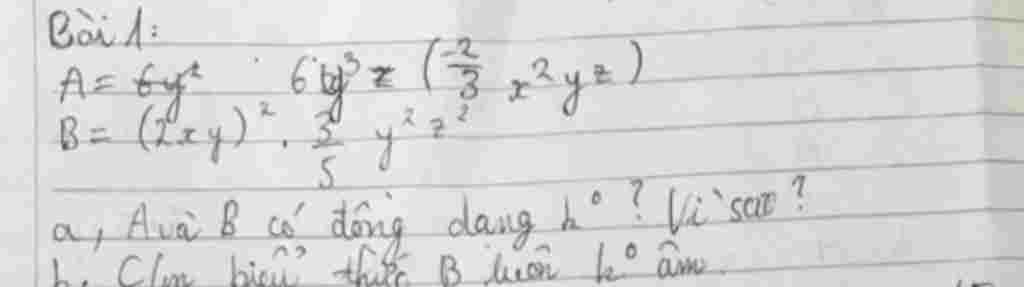 Bài 1:
A = 6y² 6y³ z (-2/3 x² y z)
B = (2xy)² . 3/5 y² z²
a, A và B có đồng dạng k° ? Vì sao ?
b, C/m biểu thức B luôn k° âm.